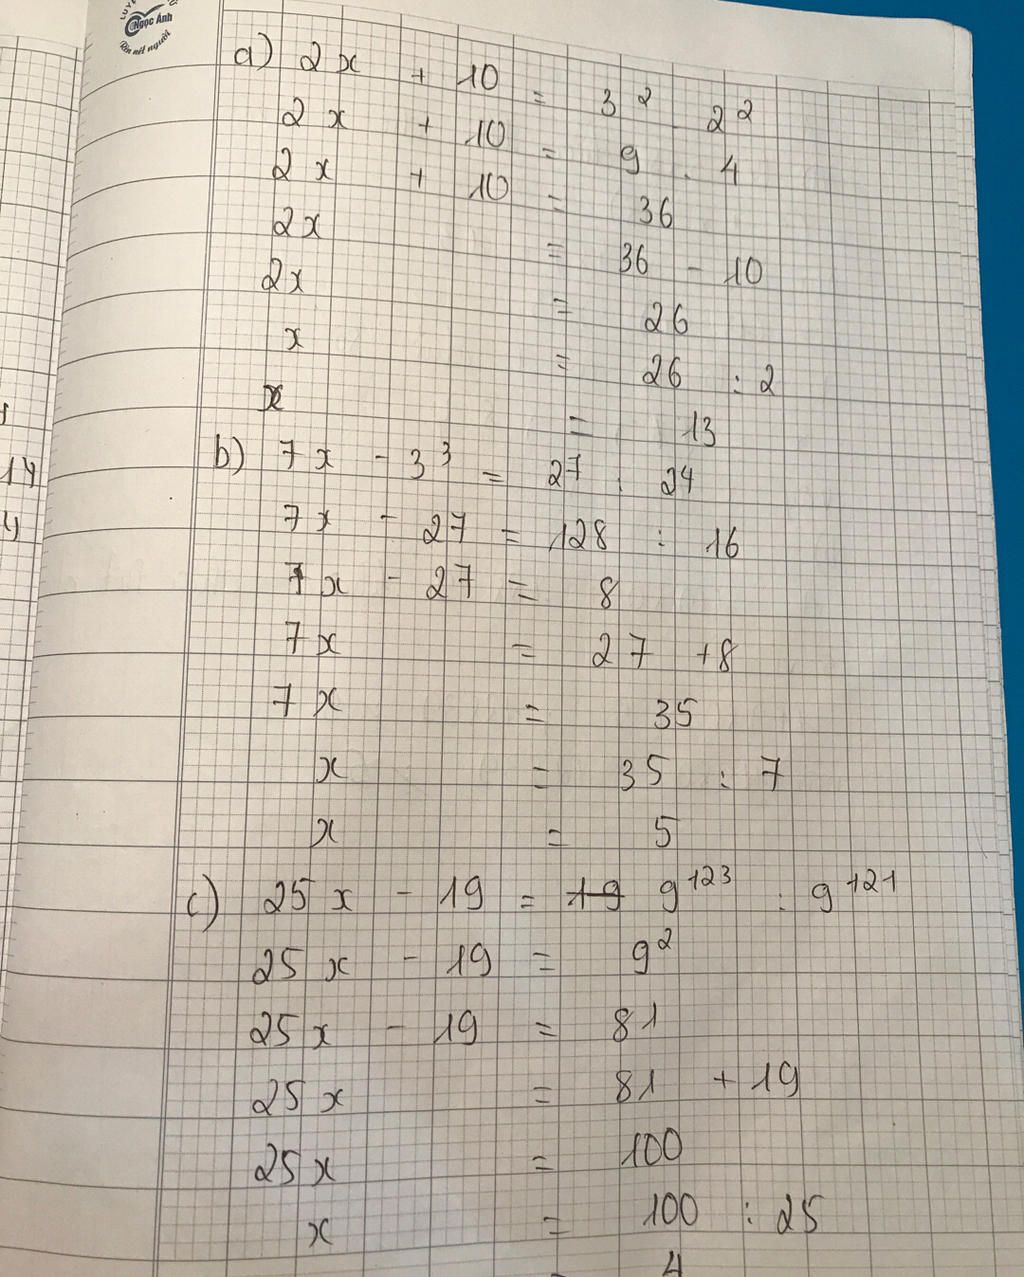 LUYỆ
Ngọc Ánh
Rèn nét người
a) 2x + 10 = 3² . 2²
2x + 10 = 9 . 4
2x + 10 = 36
2x = 36 - 10
2x = 26
x = 26 : 2
x = 13
b) 7x - 3³ = 2⁷ : 2⁴
7x - 27 = 128 : 16
7x - 27 = 8
7x = 27 + 8
7x = 35
x = 35 : 7
x = 5
c) 25x - 19 = 19 9¹²³ : 9¹²¹
25x - 19 = 9²
25x - 19 = 81
25x = 81 + 19
25x = 100
x = 100 : 25
= 4
14
4